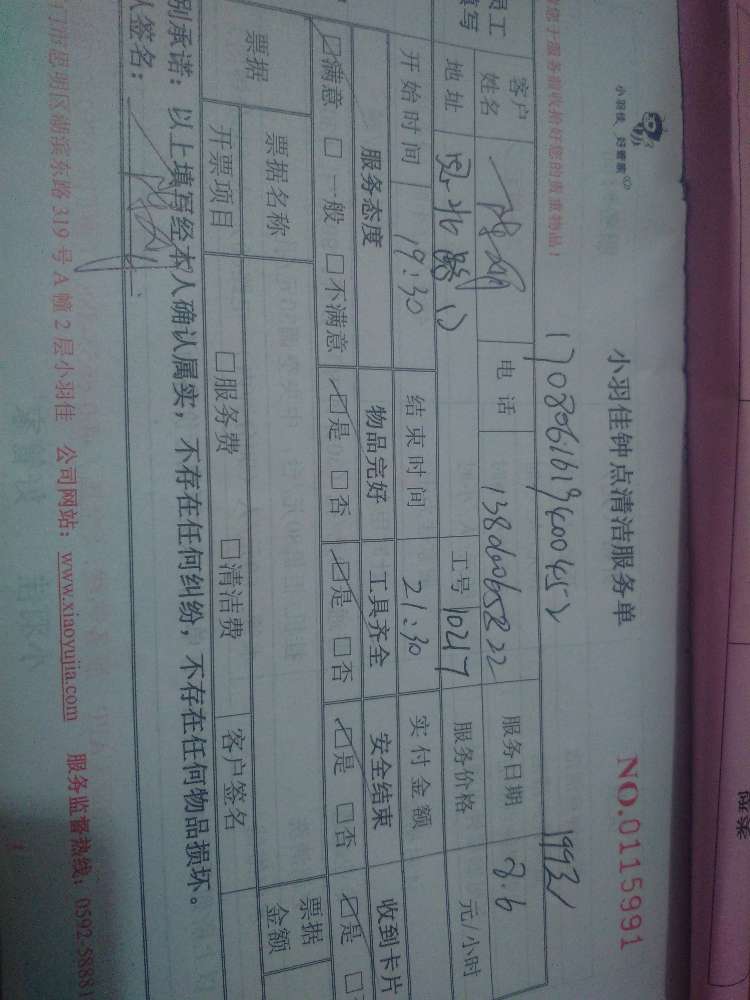 小羽佳 好管家
小羽佳钟点清洁服务单
NO.0115991
您于服务前收拾好您的贵重物品！
员工
填写
客户
姓名
电话
服务日期
8.6
地址
工号
10217
服务价格
元/小时
开始时间
19:30
结束时间
21:30
实付金额
服务态度
物品完好
工具齐全
安全结束
收到卡片
☑满意 □一般 □不满意
☑是 □否
☑是 □否
☑是 □否
☑是
票据
票据名称
票据
金额
开票项目
□服务费 □清洁费
客户签名
别承诺：以上填写经本人确认属实，不存在任何纠纷，不存在任何物品损坏。
人签名：
门市思明区湖滨东路319号A幢2层小羽佳 公司网站：www.xiaoyujia.com 服务监督热线：0592-58881